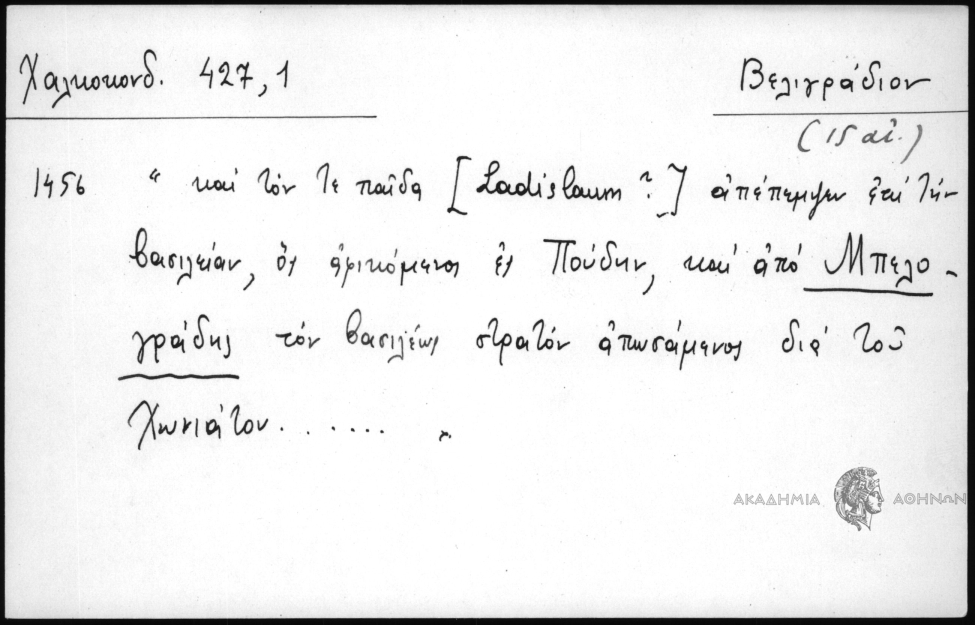 Χαλκοκονδ. 427,1
Βελιγράδιον
(15 αἰ.)
1456 “ καὶ τόν τε παῖδα [Ladislaum ?] ἀπέπεμψεν ἐπὶ τὴν
βασιλείαν, ὃς ἀφικόμενος ἐς Πούδην, καὶ ἀπὸ Μπελο-
γράδης τὸν βασιλέως στρατὸν ἀπωσάμενος διὰ τοῦ
Χωνιάτου....... ”.
ΑΚΑΔΗΜΙΑ ΑΘΗΝΩΝ